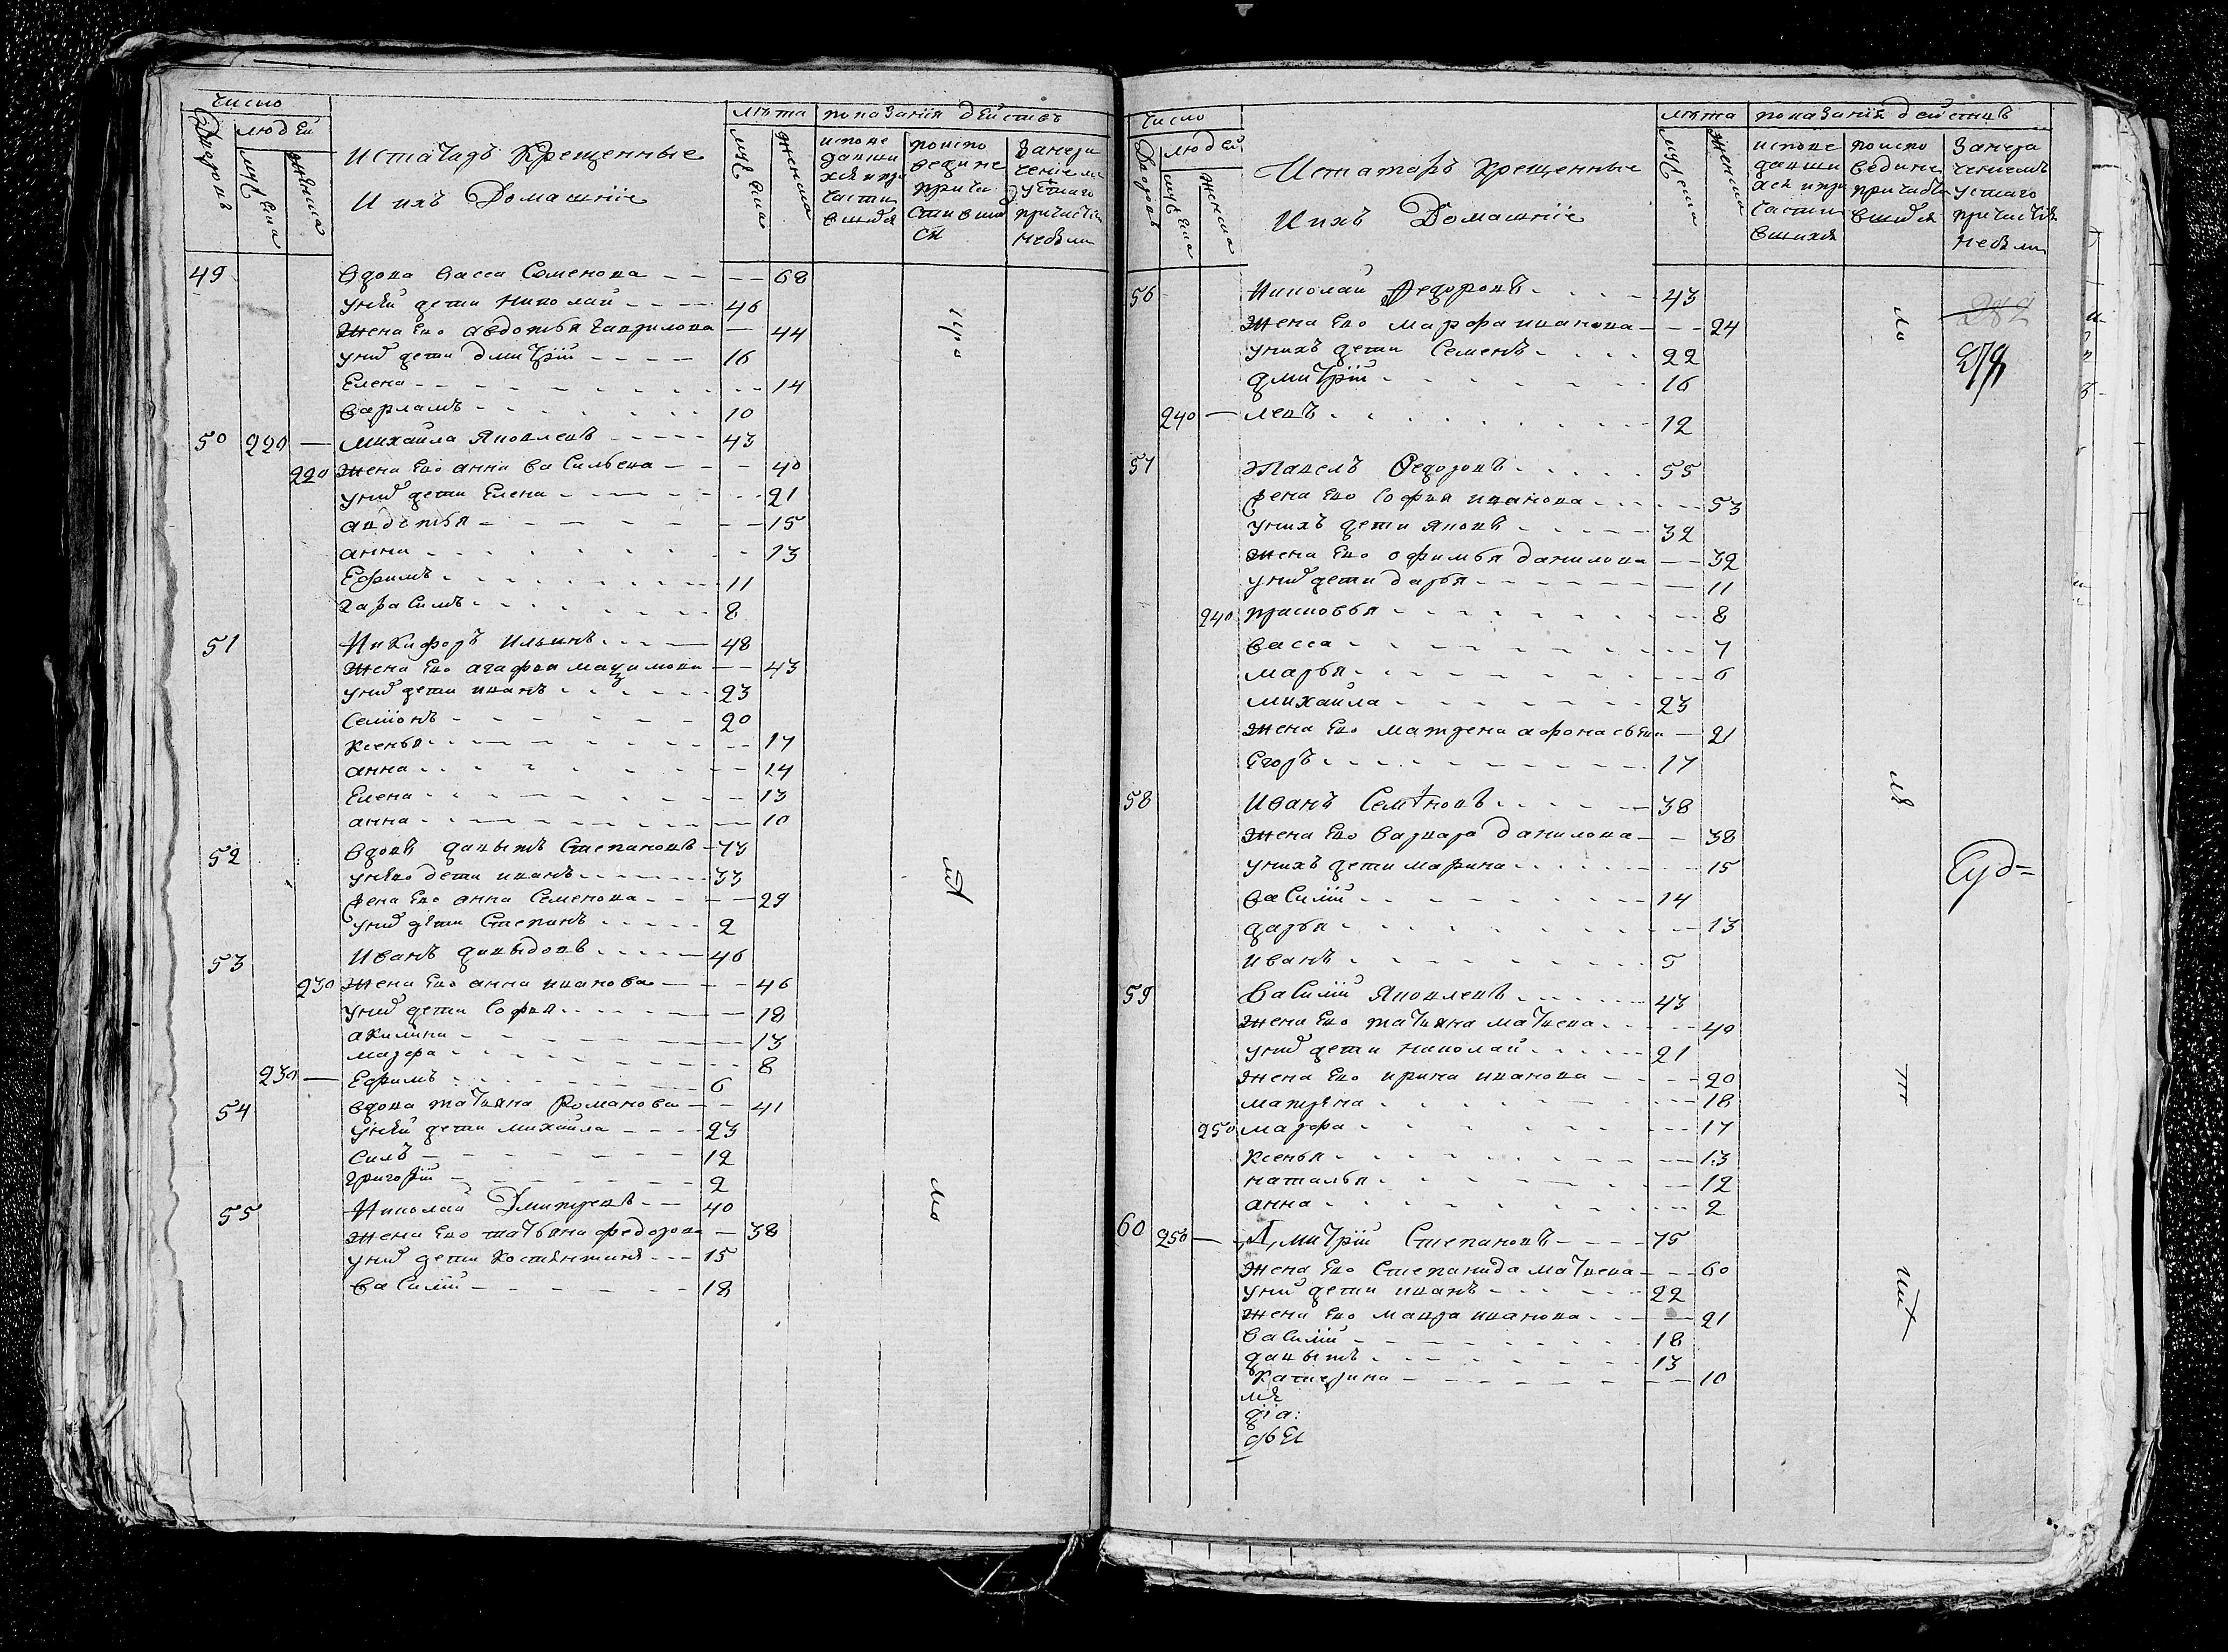 число
людей
Дворовъ
муска
женска
Истатаръ Крещенные
И ихъ Домашнiе
лѣта
муска
женска
показанiя действъ
испове
давши
хся и при
части
вшихся
поиспо
ведине
прича
стивши
ся
Занера
ченiемъ
устаго
причастiя
небыли
49 вдова васса Семенова 68
унѣй дети николай 46
жена Ево авдотья гаврилова 44
уних дети дмитрiй 16
Елена 14
варламъ 10
50 220 михаила Яковлевъ 43
220 жена Ево анна васильева 40
уних дети Елена 21
авдотья 15
анна 13
Ефимъ 11
гарасимъ 8
51 Никифоръ Ильинъ 48
жена Ево агафья мацимова 43
уних дети иванъ 23
Семiонъ 20
ксенья 17
анна 14
Елена 13
анна 10
52 вдовъ давытъ Степановъ 73
унево дети иванъ 33
жена Ево анна Семенова 29
уних дети Степанъ 2
53 Иванъ давыдовъ 46
230 жена Ево анна иванова 46
уних дети Софья 18
акилина 13
марфа 8
230 Ефимъ 6
54 вдова татьяна Романова 41
унѣй дети михаила 23
Силъ 12
григорiй 2
55 Николай Дмитревъ 40
жена Ево татьяна федорова 38
уних дети костянтинъ 15
василiй 18
число
людей
Дворовъ
муска
женска
Истатаръ Крещенные
И ихъ Домашнiе
лѣта
муска
женска
показанiя действъ
испове
давши
хся и при
части
вшихся
поиспо
ведине
причаста
вшихся
Занера
ченiемъ
устаго
причастiя
небыли
56 Николай Федоровъ 43
282
жена Ево марфа иванова 24
унихъ дети Семенъ 22
дмитрiй 16
240 левъ 12
57 Павелъ Федоровъ 55
жена Ево Софья иванова 53
унихъ дети Яковъ 32
жена Ево офимья данилова 32
уних дети дарья 11
240 прасковья 8
васса 7
марья 6
михаила 23
жена Ево матрена афонасьева 21
Егоръ 17
58 Иванъ Семѣновъ 38
жена Ево варвара данилова 38
унихъ дети марина 15
василiй 14
дарья 13
иванъ 5
59 василiй Яковлевъ 43
жена Ево татьяна матвева 40
уних дети николай 21
жена Ево ирина иванова 20
матрена 18
250 марфа 17
ксенья 13
наталья 12
анна 2
60 250 Дмитрiй Степановъ 75
жена Ево Степанида матвева 60
уних дети иванъ 22
жена Ево мавра иванова 21
василiй 18
давытъ 13
катерина 10
дiа: